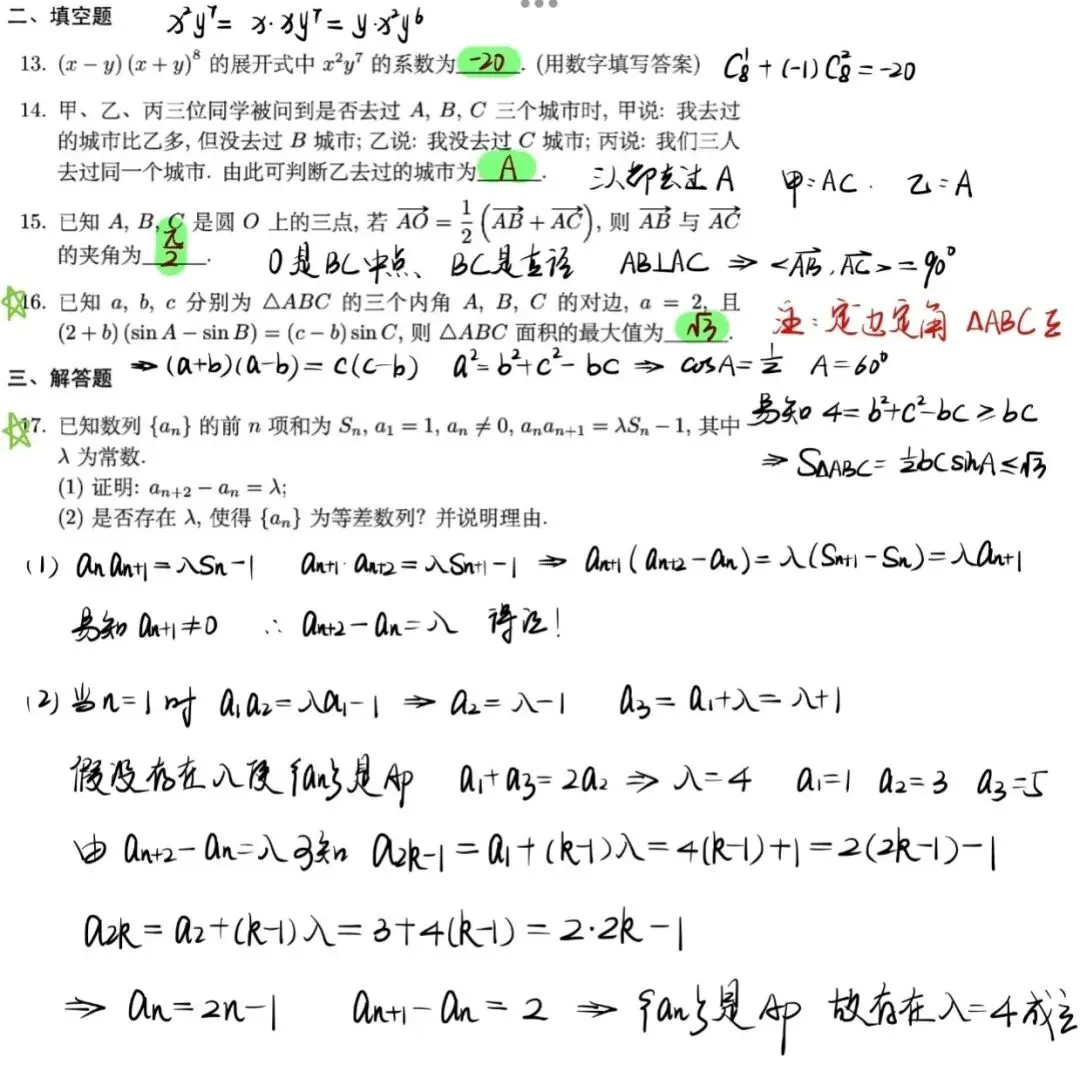 二、填空题 x²y⁷ = x·xy⁷ = y·x²y⁶
13. (x − y)(x + y)⁸ 的展开式中 x²y⁷ 的系数为 -20 . (用数字填写答案) C₈¹ + (-1) C₈² = -20
14. 甲、乙、丙三位同学被问到是否去过 A, B, C 三个城市时, 甲说: 我去过
的城市比乙多, 但没去过 B 城市; 乙说: 我没去过 C 城市; 丙说: 我们三人
去过同一个城市. 由此可判断乙去过的城市为 A . 三人都去过 A 甲:AC. 乙:A
15. 已知 A, B, C 是圆 O 上的三点, 若 \overrightarrow{AO} = \frac{1}{2}(\overrightarrow{AB} + \overrightarrow{AC}), 则 \overrightarrow{AB} 与 \overrightarrow{AC}
的夹角为 \frac{π}{2} . O是BC中点、 BC是直径 AB⊥AC ⇒ <\overrightarrow{AB}, \overrightarrow{AC}> = 90°
16. 已知 a, b, c 分别为 △ABC 的三个内角 A, B, C 的对边, a = 2, 且
(2 + b)(sin A − sin B) = (c − b) sin C, 则 △ABC 面积的最大值为 √3 . 注:定边定角 △ABC
⇒ (a+b)(a-b) = c(c-b) a² = b²+c²-bc ⇒ cosA = \frac{1}{2} A = 60°
三、解答题
易知 4 = b²+c²-bc ≥ bc
⇒ S△ABC = ½bcsinA ≤ √3
17. 已知数列 {aₙ} 的前 n 项和为 Sₙ, a₁ = 1, aₙ ≠ 0, aₙaₙ₊₁ = λSₙ − 1, 其中
λ 为常数.
(1) 证明: aₙ₊₂ − aₙ = λ;
(2) 是否存在 λ, 使得 {aₙ} 为等差数列? 并说明理由.
(1) aₙaₙ₊₁ = λSₙ-1 aₙ₊₁·aₙ₊₂ = λSₙ₊₁-1 ⇒ aₙ₊₁(aₙ₊₂-aₙ) = λ(Sₙ₊₁-Sₙ) = λaₙ₊₁
易知 aₙ₊₁≠0 ∴ aₙ₊₂-aₙ = λ 得证!
(2) 当n=1时 a₁a₂ = λa₁-1 ⇒ a₂ = λ-1 a₃ = a₁+λ = λ+1
假设存在λ使{aₙ}是Ap a₁+a₃ = 2a₂ ⇒ λ=4 a₁=1 a₂=3 a₃=5
由 aₙ₊₂-aₙ=λ可知 a₂ₖ₋₁ = a₁+(k-1)λ = 4(k-1)+1 = 2(2k-1)-1
a₂ₖ = a₂+(k-1)λ = 3+4(k-1) = 2·2k-1
⇒ aₙ = 2n-1 aₙ₊₁-aₙ = 2 ⇒ {aₙ}是Ap 故存在λ=4成立